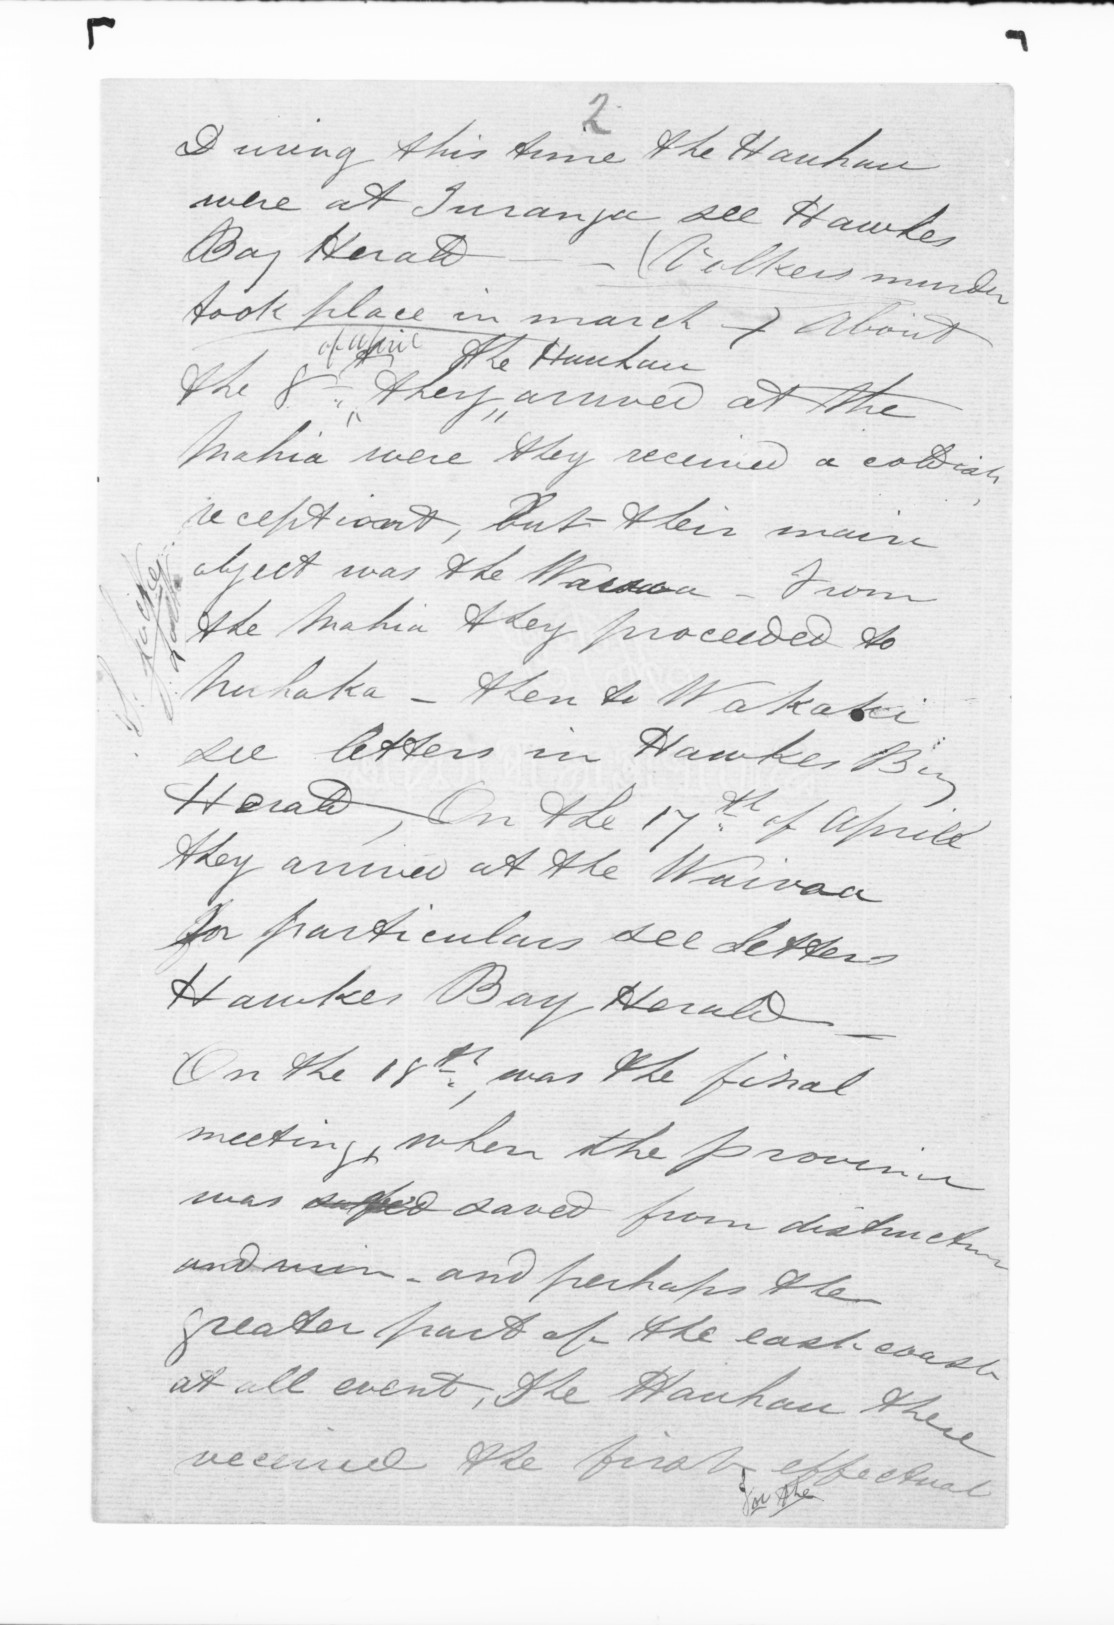 2
During this time the Hauhau
were at Turanga see Hawkes
Bay Herald — — (Volkers murder
took place in march —) About
of April the Hauhau
the 8th they arrived at the
Mahia were they received a coldish
reception, but their main
object was the Wairoa – From
the Mahia they proceeded to
Nuhaka – then to Wakaki
see letters in Hawkes Bay
Herald, On the 17th of Aprile
they arrived at the Wairoa
for particulars see letters
Hawkes Bay Herald —
On the 18th, was the final
meeting, when the province
was saved from distruction
and ruin – and perhaps the
greater part of the east coast
at all event, the Hauhau there
received the first effectual
in the